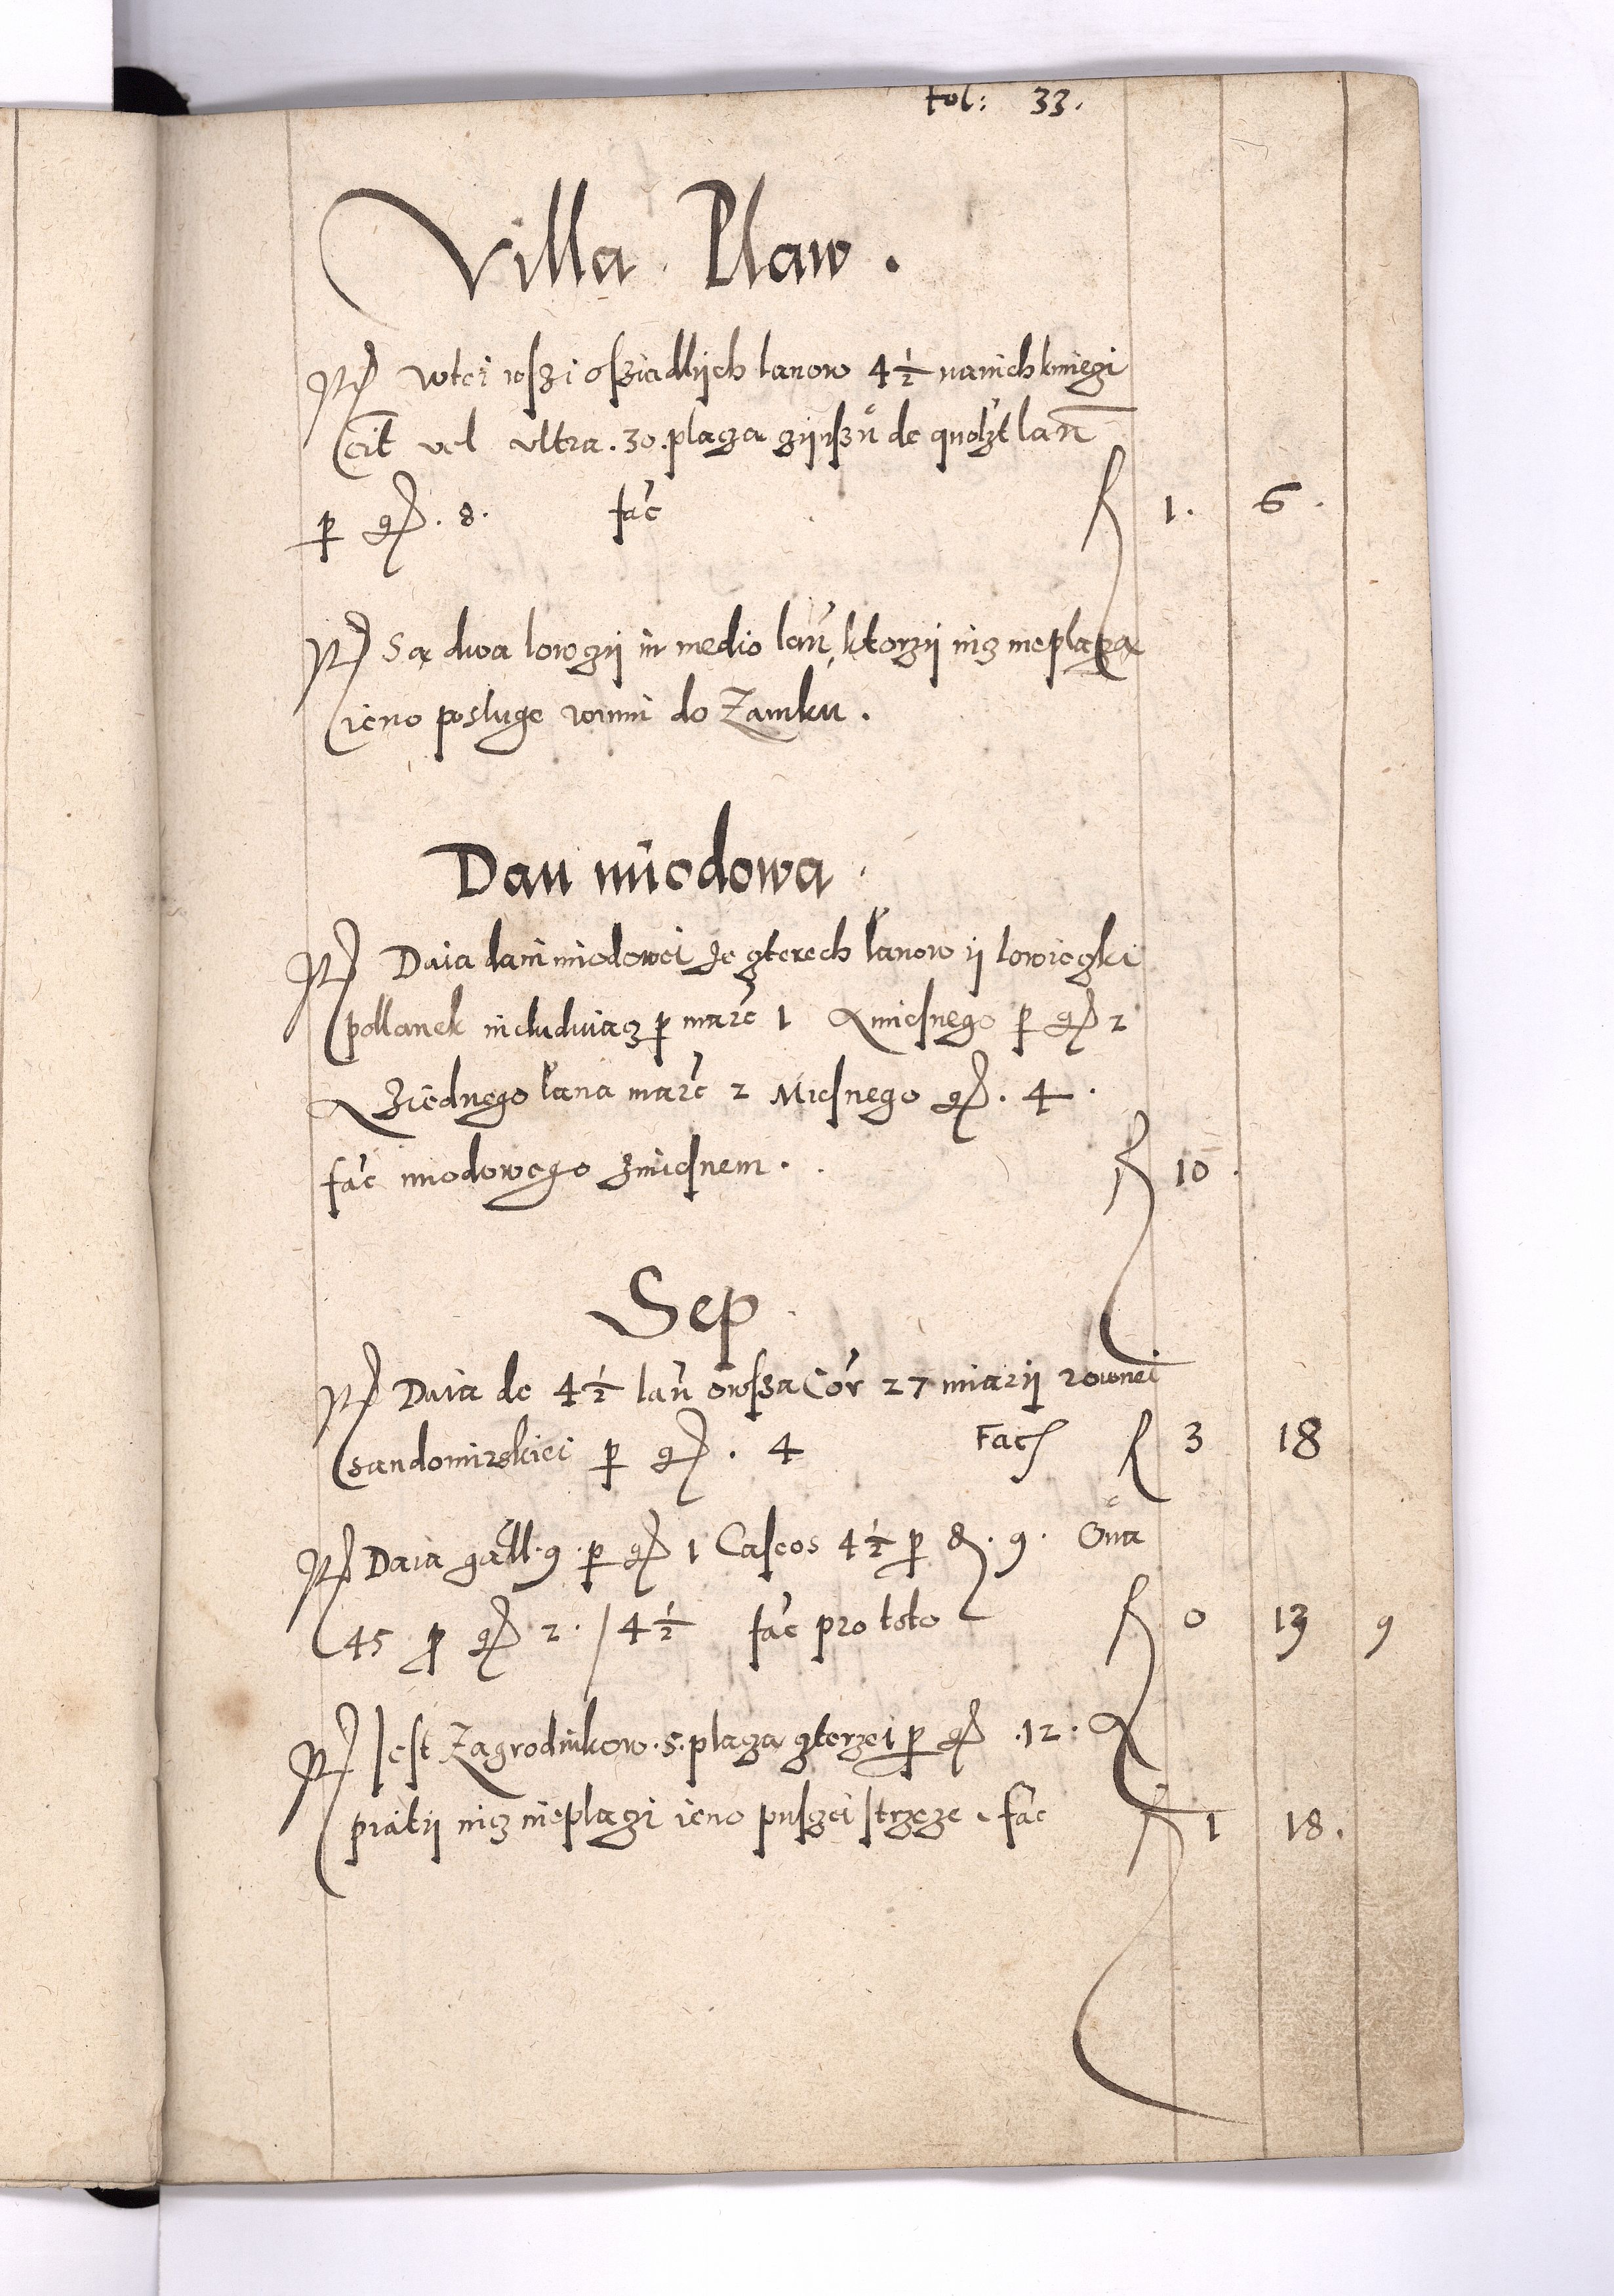 Fol: 33.
Villa Plaw.
Itē wtei wszi osziadlÿch lanow 4 1/2 nanich kmiegi
cit vel ultra. 30. placza czÿnszů de quolzt lan̄
p gr. 8. fac̄ R 1. 6.
Itē Są dwa lowczÿ in medio lan̄, ktorzÿ nicz nieplaczą
ieno posluge winni do Zamku.
Dan miodowa.
Itē Daia dani miodowei ze czterech lanow ÿ lowieczki
pollanek includuiącz p marc̄ 1 & miesnego p gr 2
& ziednego lana marc̄ 2 Miesnego gr. 4.
fac̄ miodowego zmiesnem. R 10.
Sep
Itē Daia de 4 1/2 lan̄ owsza Cor̄ 27 miarÿ rownei
sandomirskiei p gr. 4 Fac R 3 18
Itē Daia gall. 9. p gr 1 Caseos 4 1/2 p d. 9. Oua
45 p gr 2. / 4 1/2 fac̄ pro toto R 0 13 9
Itē Jest Zagrodnikow. 5. placza czterzei p gr .12. &
piatÿ nicz nieplaczi ieno puszczei strzeze. fac R 1 18.